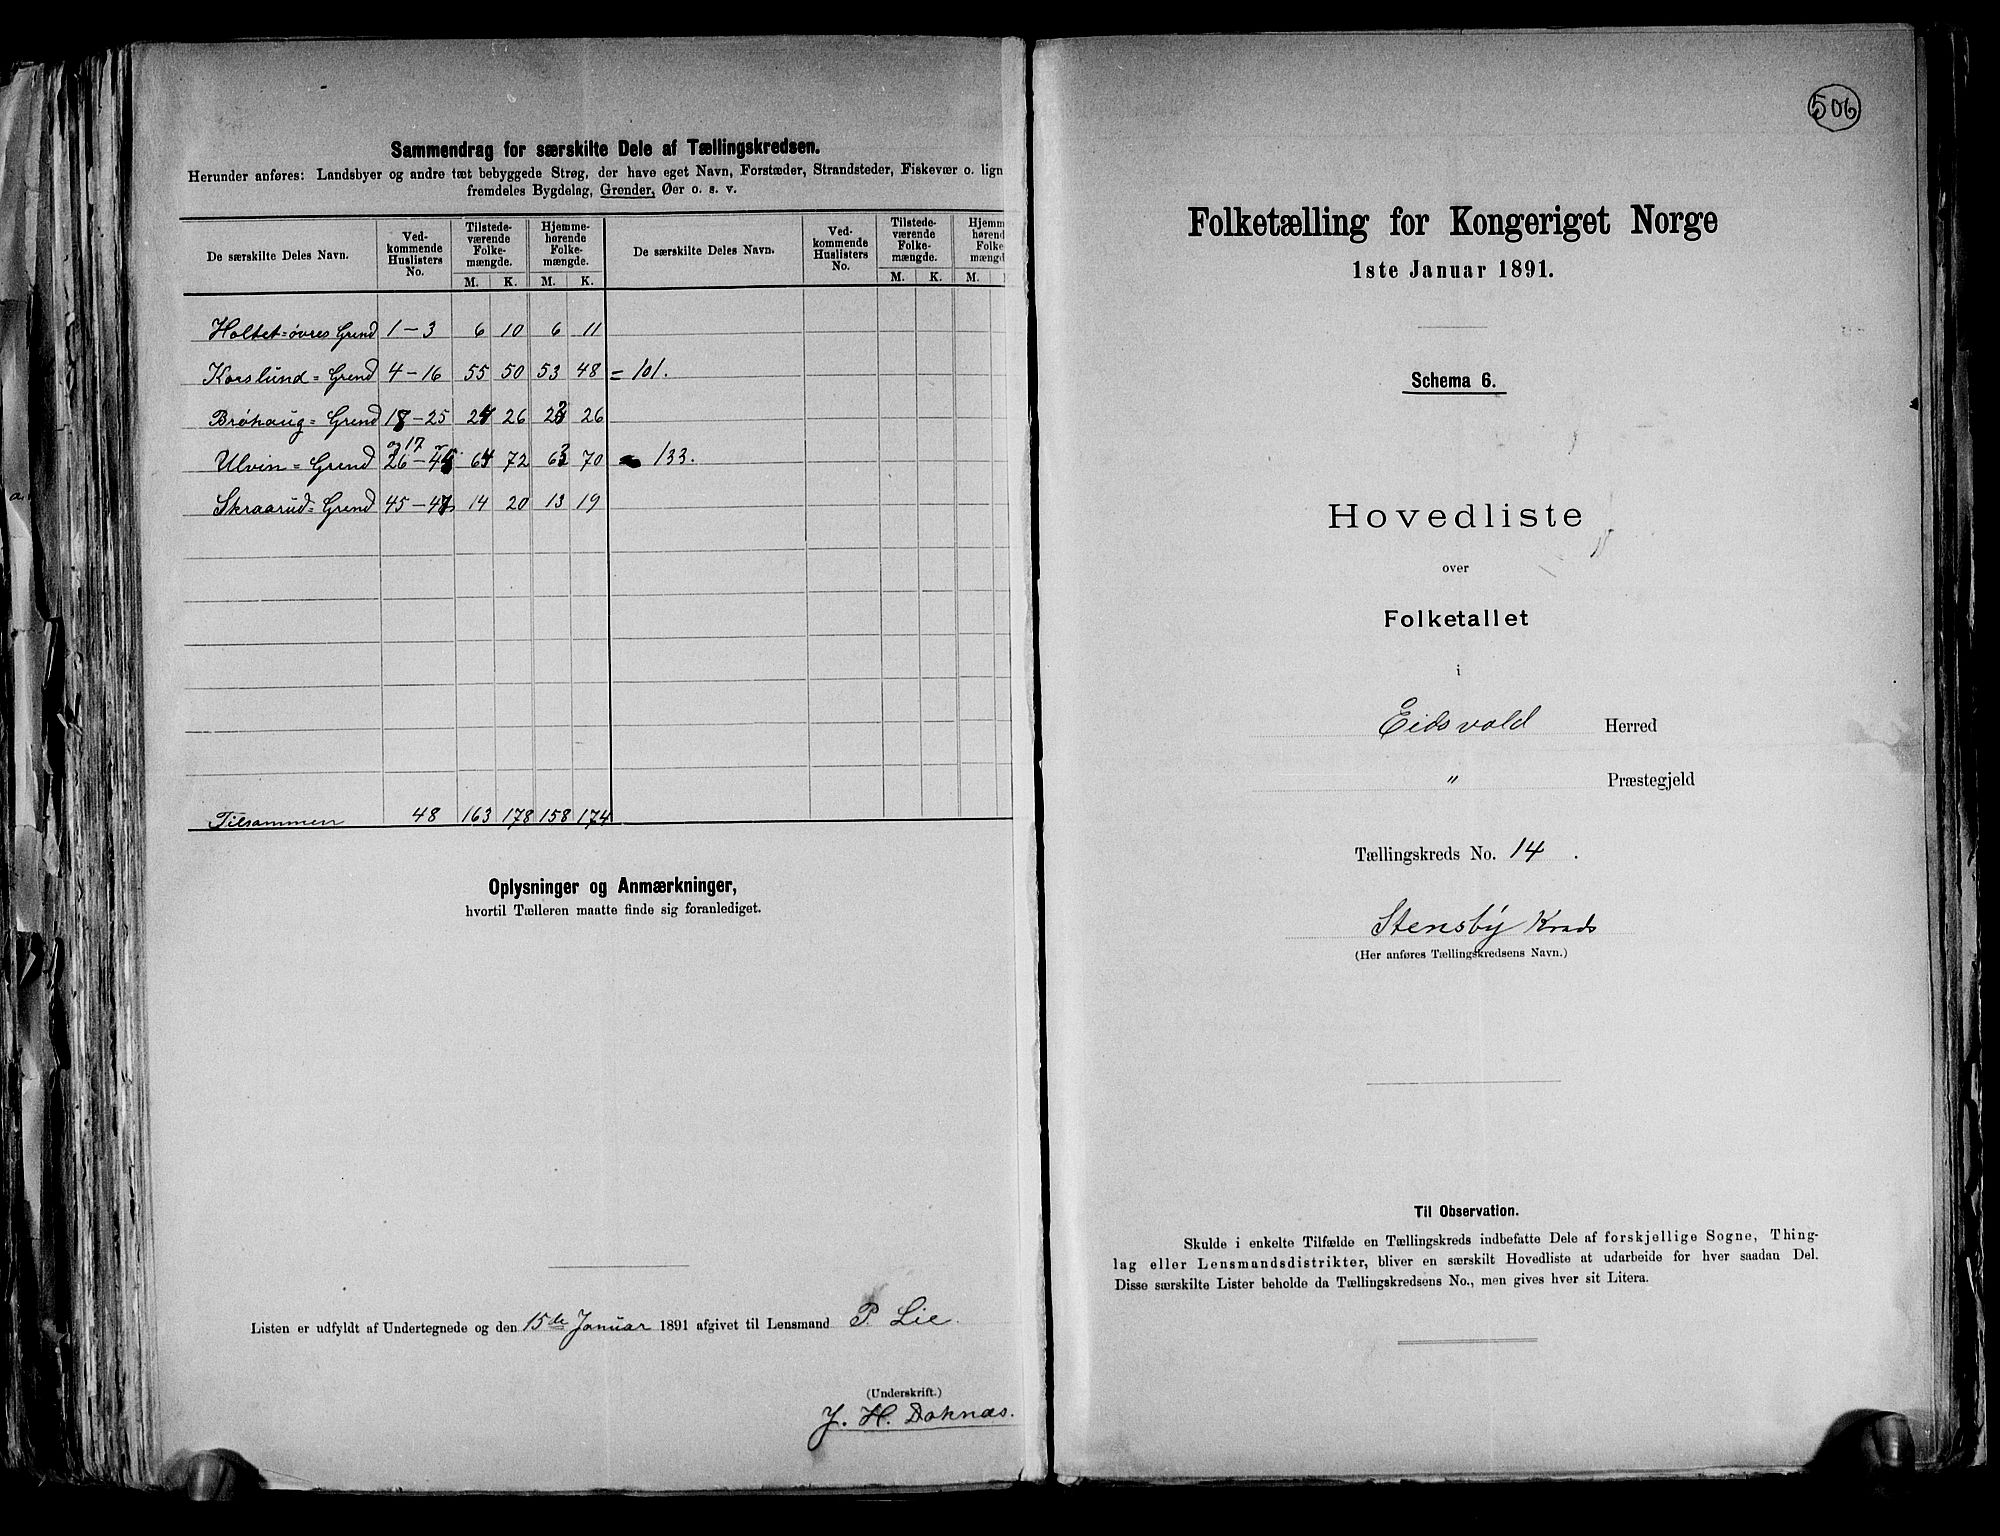 Sammendrag for særskilte Dele af Tællingskredsen.
Herunder anføres: Landsbyer og andre tæt bebyggede Strøg, der have eget Navn, Forstæder, Strandsteder, Fiskevær o. lign
fremdeles Bygdelag, Grender, Øer o. s. v.
De særskilte Deles Navn. Ved-kommende Huslisters No. Tilstede-værende Folke-mængde. Hjemme-hørende Folke-mængde. De særskilte Deles Navn. Ved-kommende Huslisters No. Tilstede-værende Folke-mængde. Hjemm hørend Folke mængd
M. K. M. K. M. K. M.
Holtet=øvres Grend 1-3 6 10 6 11
Korslund=Grend 4-16 55 50 53 48 = 101.
Brøhaug=Grend 18-25 24 26 23 26
og 17
Ulvin=Grend 26-44 64 72 63 70 = 133.
Skraarud=Grend 45-48 14 20 13 19
Tilsammen 48 163 178 158 174
Oplysninger og Anmærkninger,
hvortil Tælleren maatte finde sig foranlediget.
Listen er udfyldt af Undertegnede og den 15de Januar 1891 afgivet til Lensmand P. Lie.
(Underskrift.)
J. H. Doknæs.
506
Folketælling for Kongeriget Norge
1ste Januar 1891.
Schema 6.
Hovedliste
over
Folketallet
i
Eidsvold Herred
" Præstegjeld
Tællingskreds No. 14 .
Stensby Kreds
(Her anføres Tællingskredsens Navn.)
Til Observation.
Skulde i enkelte Tilfælde en Tællingskreds indbefatte Dele af forskjellige Sogne, Thing-
lag eller Lensmandsdistrikter, bliver en særskilt Hovedliste at udarbeide for hver saadan Del.
Disse særskilte Lister beholde da Tællingskredsens No., men gives hver sit Litera.